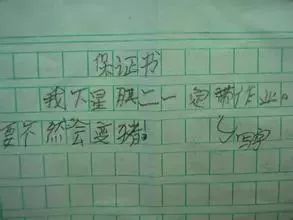 保证书
我下星期二一定带作业。
要不然会变猪!